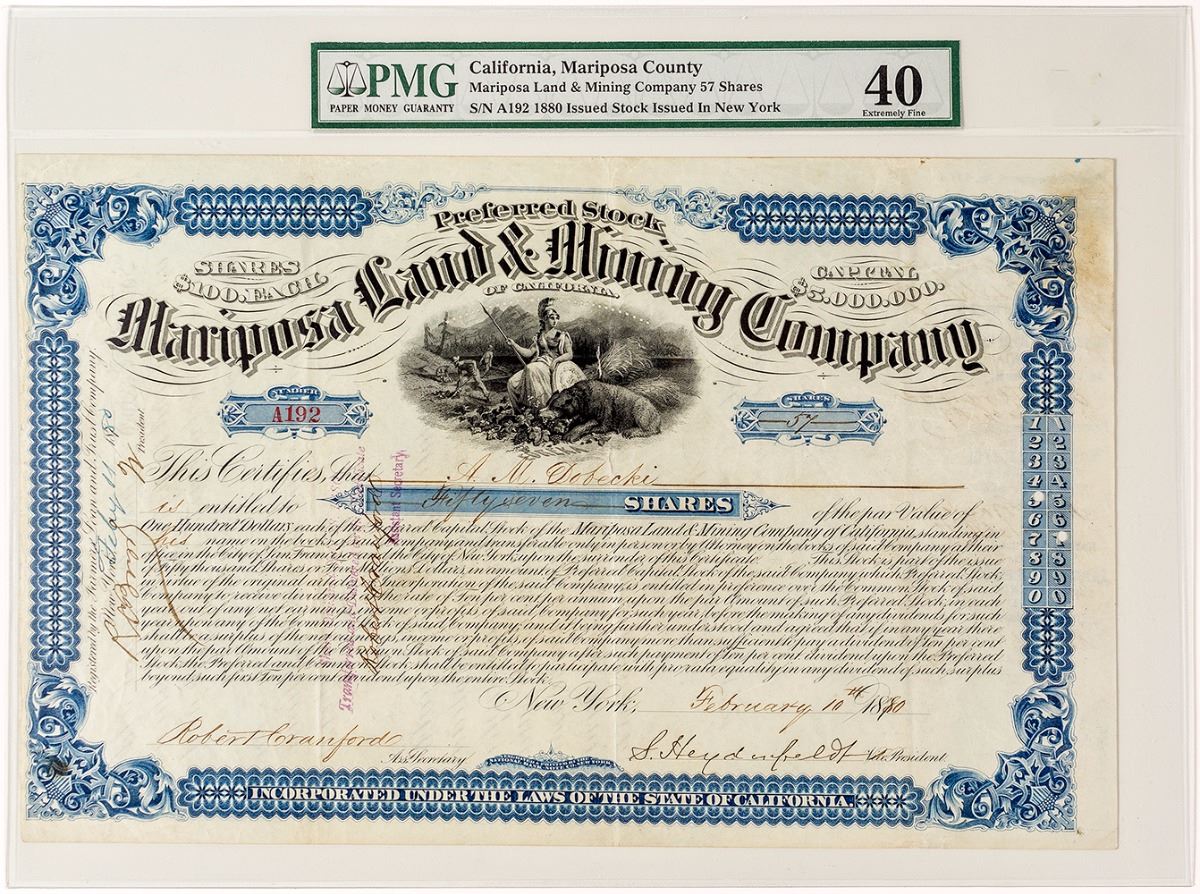 PMG
PAPER MONEY GUARANTY
California, Mariposa County
Mariposa Land & Mining Company 57 Shares
S/N A192 1880 Issued Stock Issued In New York
40
Extremely Fine
Preferred Stock
SHARES
$100. EACH.
CAPITAL
$5.000.000.
Mariposa Land & Mining Company
OF CALIFORNIA
NUMBER
A192
SHARES
57
This Certifies, that A. M. Dobecki
is entitled to Fifty seven SHARES of the par Value of
One Hundred Dollars each of the Preferred Capital Stock of the Mariposa Land & Mining Company of California, standing in
his name on the books of said Company and transferable only in person or by Attorney on the books of said Company at their
office in the City of San Francisco or the City of New York upon the surrender of this Certificate. This Stock is part of the issue
of Fifty thousand Shares or Five Millions Dollars in amount of Preferred Capital Stock of the said Company which Preferred Stock
in each year before the making of any dividends for such
year upon any of the Common Stock of said Company, and it is further understood and agreed that if in any year there
shall be a surplus of the net earnings, income or profits of said Company more than sufficient to pay a dividend of ten per cent
upon the par Amount of the Common Stock of said Company after such payment of ten per cent dividend upon the Preferred
Stock the Preferred and Common Stock shall be entitled to participate with pro rata equality in any dividend of such surplus
beyond such first ten per cent dividend upon the entire Stock.
New York, February 10th 1880
Robert Cranford
Ass. Secretary
S. Heydenfeldt
Vice President
INCORPORATED UNDER THE LAWS OF THE STATE OF CALIFORNIA.
Registered by the Farmers Loan and Trust Company
President
Assistant Secretary.
1 2 3 4 5 6 7 8 9 0
1 2 3 4 5 6 7 8 9 0